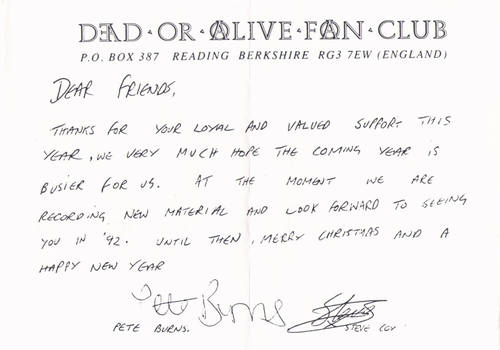 DEAD·OR·ALIVE·FAN·CLUB
P.O. BOX 387 READING BERKSHIRE RG3 7EW (ENGLAND)
DEAR FRIENDS,
THANKS FOR YOUR LOYAL AND VALUED SUPPORT THIS
YEAR, WE VERY MUCH HOPE THE COMING YEAR IS
BUSIER FOR US. AT THE MOMENT WE ARE
RECORDING NEW MATERIAL AND LOOK FORWARD TO SEEING
YOU IN '92. UNTIL THEN, MERRY CHRISTMAS AND A
HAPPY NEW YEAR
Pete Burns Steve
PETE BURNS. STEVE COY.